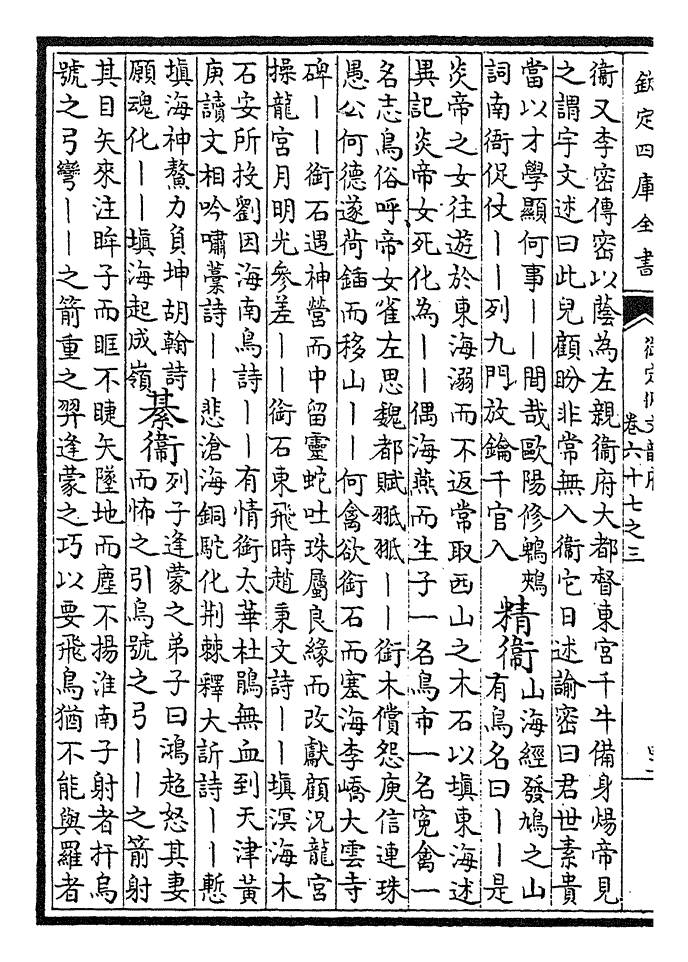 欽定四庫全書
御定佩文韻府
卷六十七之三
衛又李密傳密以蔭為左親衛府大都督東宮千牛備身煬帝見
之謂宇文述曰此兒顧盼非常無入衛它日述諭密曰君世素貴
當以才學顯何事｜｜間哉歐陽修鵯鵊
詞南衙促仗｜｜列九門放鑰千官入
精衛
山海經發鳩之山
有鳥名曰｜｜是
炎帝之女往遊於東海溺而不返常取西山之木石以塡東海述
異記炎帝女死化為｜｜偶海燕而生子一名鳥市一名寃禽一
名志鳥俗呼帝女雀左思魏都賦𦐂𦐂｜｜銜木償怨庾信連珠
愚公何德遂荷鍤而移山｜｜何禽欲銜石而塞海李嶠大雲寺
碑｜｜銜石遇神營而中留靈蛇吐珠屬良緣而改獻顧況龍宮
操龍宮月明光參差｜｜銜石東飛時趙秉文詩｜｜塡溟海木
石安所投劉因海南鳥詩｜｜有情銜太華杜鵑無血到天津黃
庚讀文相吟嘯藁詩｜｜悲滄海銅駝化荆棘釋大訢詩｜｜慙
塡海神鰲力負坤胡翰詩
願魂化｜｜塡海起成嶺
綦衛
列子逢蒙之弟子曰鴻超怒其妻
而怖之引烏號之弓｜｜之箭射
其目矢來注眸子而眶不睫矢墜地而塵不揚淮南子射者扞烏
號之弓彎｜｜之箭重之羿逢蒙之巧以要飛鳥猶不能與羅者